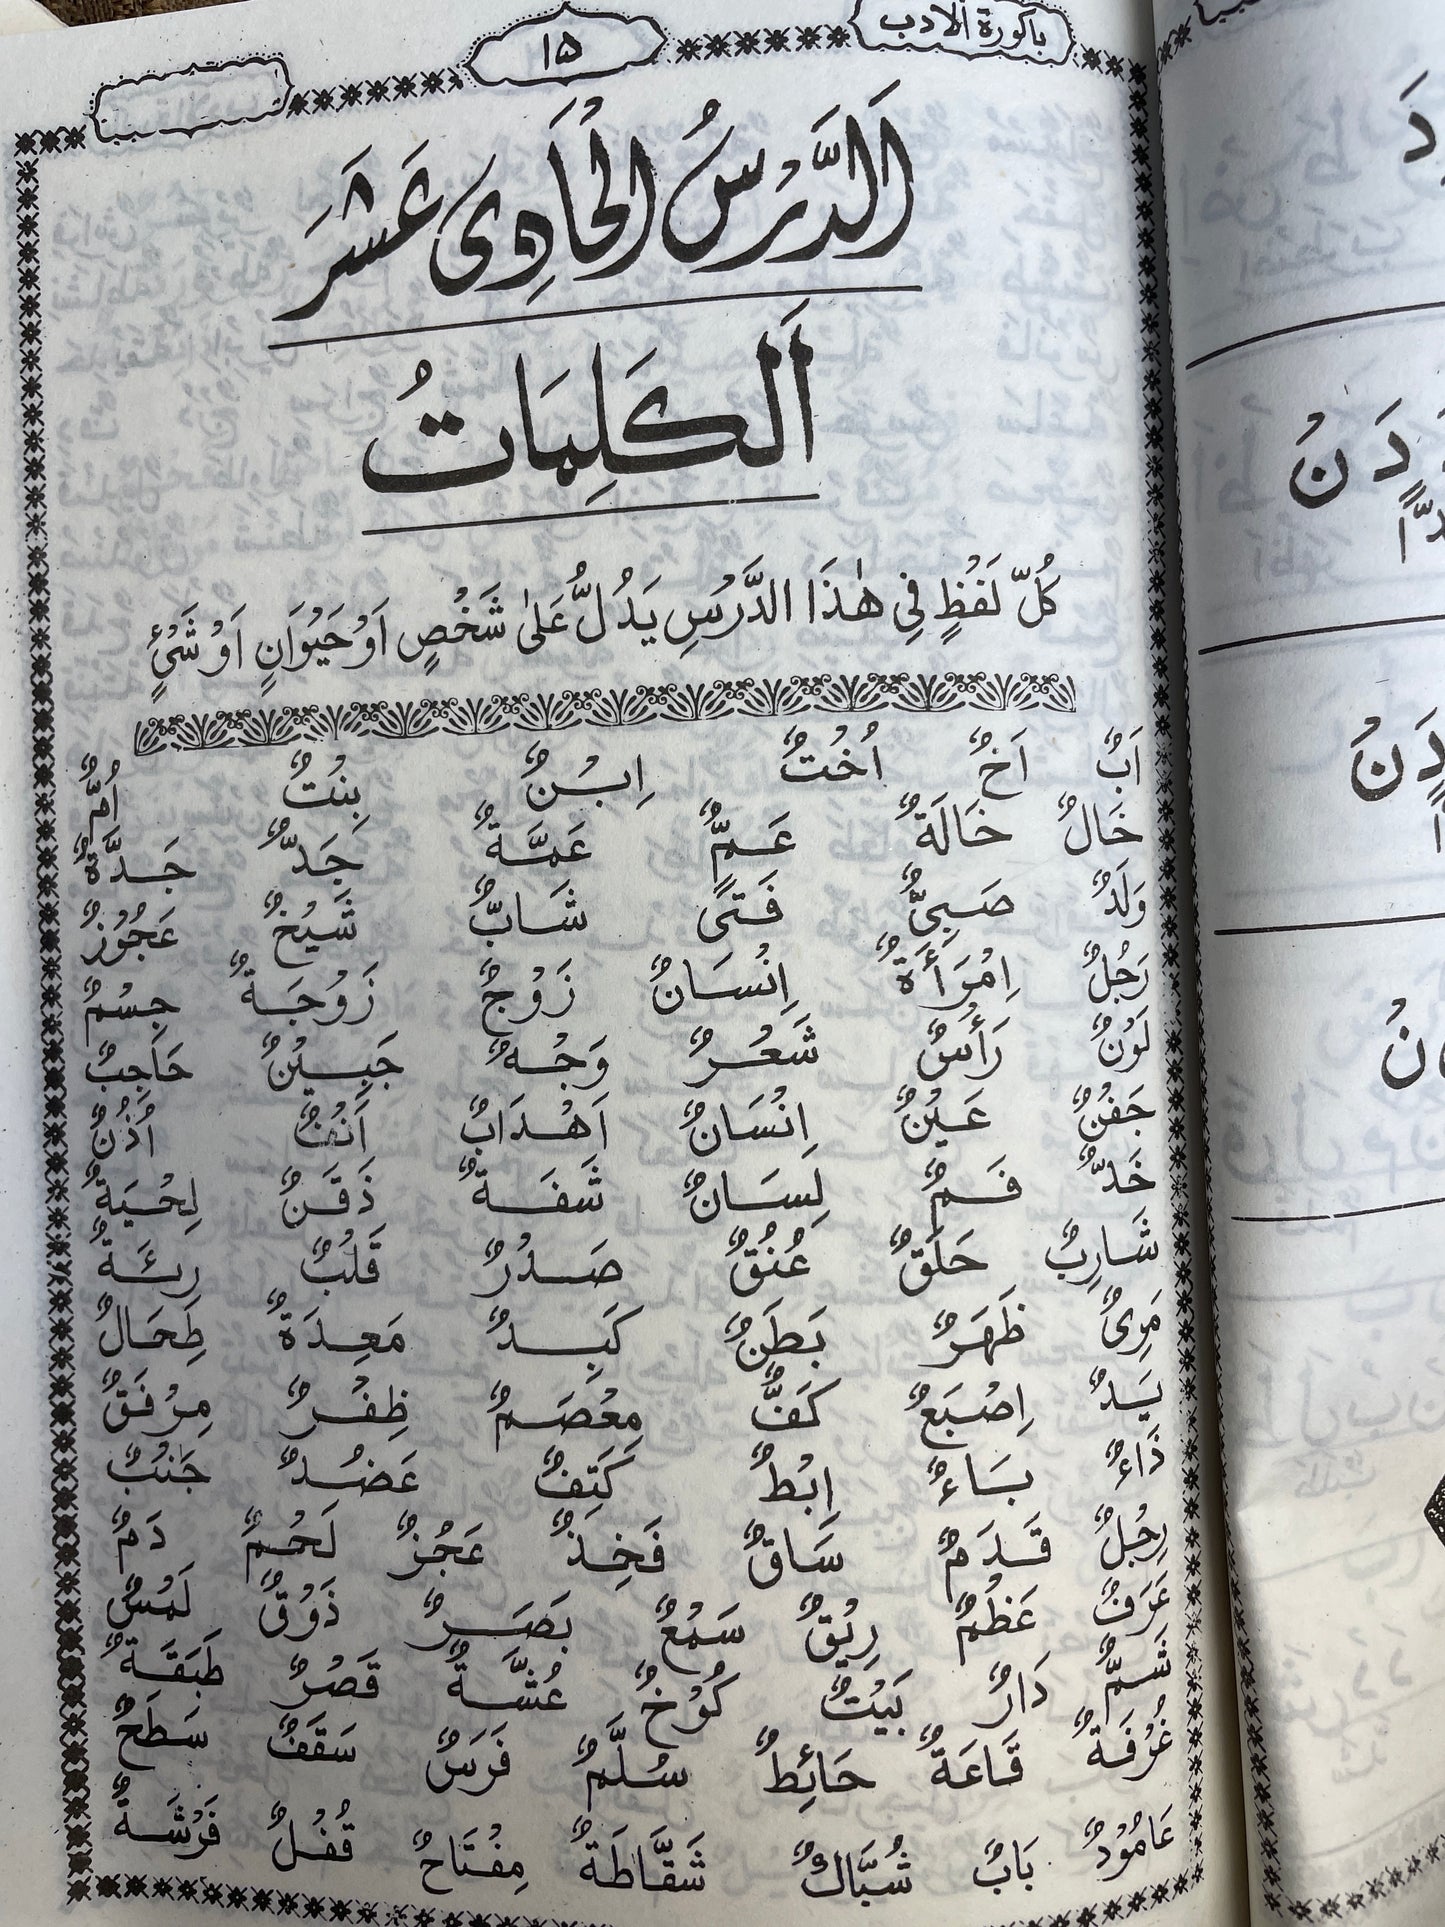 باكورة الادب
١٥
اَلدَّرْسُ الْحَاوِی عَشَرَ
اَلْكَلِمَاتُ
كُلُّ لَفْظٍ فِي هٰذَا الدَّرْسِ يَدُلُّ عَلیٰ شَخْصٍ اَوْ حَيْوَانٍ اَوْ شَيْئٍ
اَبٌ اَخٌ اُخْتٌ اِبْنٌ بِنْتٌ اُمٌّ
خَالٌ خَالَةٌ عَمٌّ عَمَّةٌ جَدٌّ جَدَّةٌ
وَلَدٌ صَبِیٌّ فَتًی شَابٌّ شَيْخٌ عَجُوْزٌ
رَجُلٌ اِمْرَأَةٌ اِنْسَانٌ زَوْجٌ زَوْجَةٌ جِسْمٌ
لَوْنٌ رَأْسٌ شَعْرٌ وَجْهٌ جَبِيْنٌ حَاجِبٌ
جَفْنٌ عَيْنٌ اِنْسَانٌ اَهْدَابٌ اَنْفٌ اُذُنٌ
خَدٌّ فَمٌ لِسَانٌ شَفَةٌ ذَقَنٌ لِحْيَةٌ
شَارِبٌ حَلْقٌ عُنُقٌ صَدْرٌ قَلْبٌ رِئَةٌ
مَرِیٌ ظَهَرٌ بَطَنٌ كَبِدٌ مَعِدَةٌ طِحَالٌ
يَدٌ اِصْبَعٌ كَفٌّ مِعْصَمٌ ظِفْرٌ مِرْفَقٌ
ذَاءٌ بَاءٌ اِبْطٌ كَتِفٌ عَضُدٌ جَنْبٌ
رِجْلٌ قَدَمٌ سَاقٌ فَخِذٌ عَجُزٌ لَحْمٌ دَمٌ
عَرَفٌ عَظْمٌ رِيْقٌ سَمْعٌ بَصَرٌ ذَوْقٌ لَمْسٌ
شَمٌّ دَارٌ بَيْتٌ كُوْخٌ عُشَّةٌ قَصْرٌ طَبَقَةٌ
غُرْفَةٌ قَاعَةٌ حَائِطٌ سُلَّمٌ فَرَسٌ سَقَفٌ سَطَحٌ
عَامُوْدٌ بَابٌ شُبَّاكٌ شَقَّاطَةٌ مِفْتَاحٌ قُفْلٌ فَرْشَةٌ